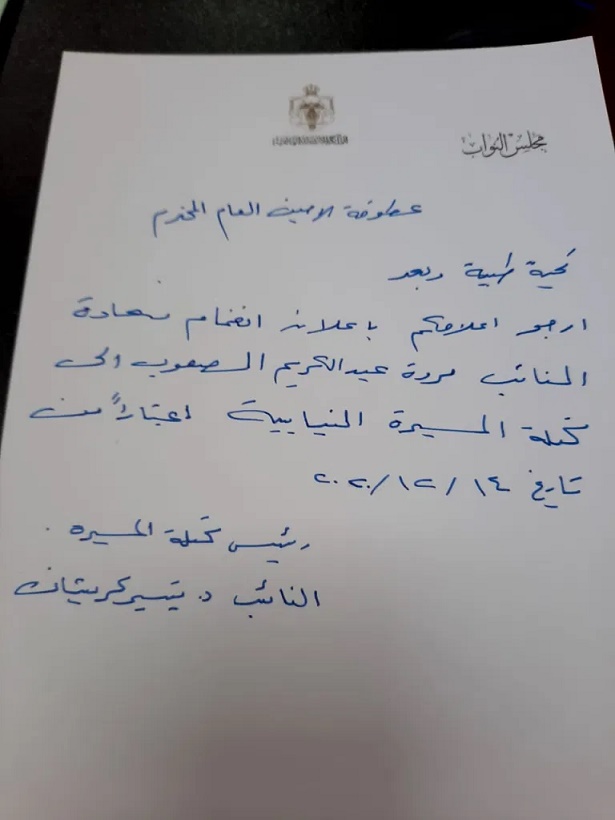 مجلس النواب
عطوفة الامين العام المحترم
تحية طيبة وبعد
ارجو اعلامكم باعلان انضمام سعادة
النائب مروة عبدالكريم الصعوب الى
كتلة المسيرة النيابية اعتباراً من
تاريخ ١٤ /١٢/ ٢٠٢٠
رئيس كتلة المسيره .
النائب د. تيسير كريشان